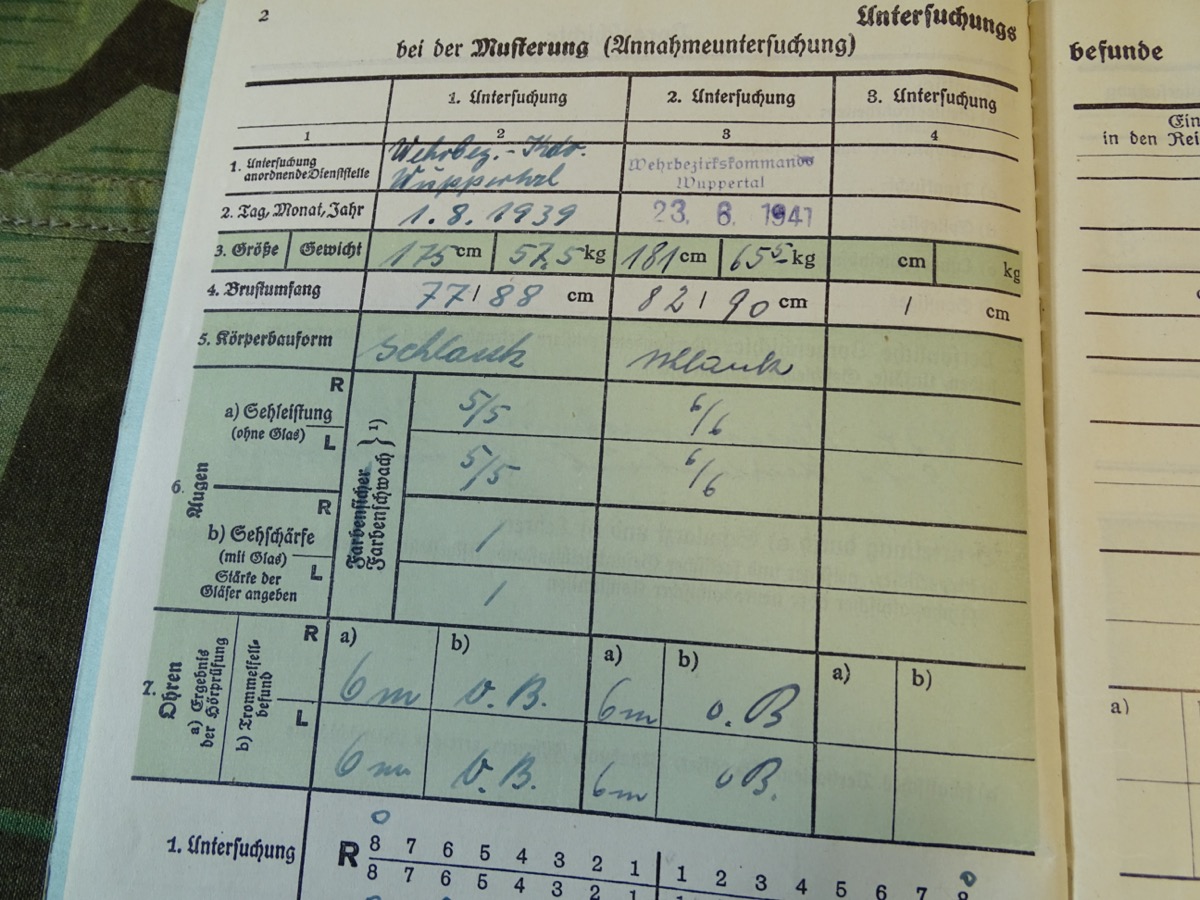 2
Untersuchungs
bei der Musterung (Annahmeuntersuchung)
befunde
1. Untersuchung 2. Untersuchung 3. Untersuchung
1 2 3 4
1. Untersuchung anordnende Dienststelle
Wehrbez.-Kdo.
Wuppertal
Wehrbezirkskommando
Wuppertal
2. Tag, Monat, Jahr 1.8.1939 23. 6. 1941
3. Größe Gewicht 175 cm 57,5 kg 181 cm 65⁵ kg cm kg
4. Brustumfang 77/88 cm 82/90 cm / cm
5. Körperbauform schlank schlank
6. Augen
a) Sehleistung
(ohne Glas)
R 5/5 6/6
L 5/5 6/6
b) Sehschärfe
(mit Glas)
Stärke der
Gläser angeben
R /
L /
Farbensicher
Farbenschwach } 1)
7. Ohren
a) Ergebnis
der Hörprüfung
b) Trommelfell-
befund
R a) 6m b) o. B. a) 6m b) o. B a) b)
L 6m o. B. 6m o B.
1. Untersuchung
R
0 0
8 7 6 5 4 3 2 1 1 2 3 4 5 6 7 8
8 7 6 5 4 3 2 1
Ein
in den Rei
a)